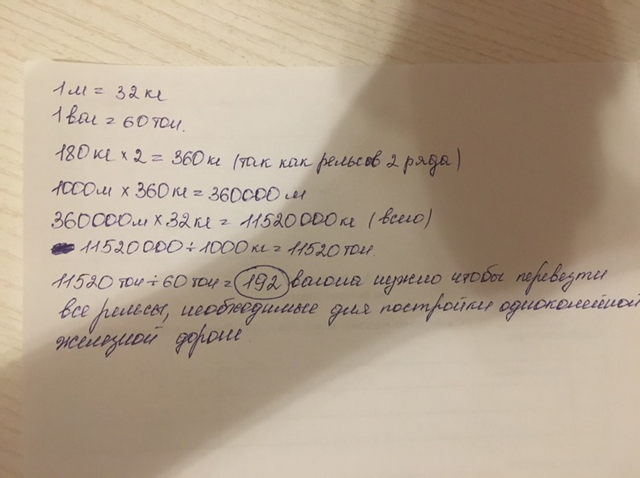 1м = 32 кг
1ваг = 60 тон.
180 кг × 2 = 360 кг (так как рельсов 2 ряда)
1000м × 360 кг = 360000 м
360000м × 32 кг = 11520000 кг (всего)
11520000 ÷ 1000 кг = 11520 тон.
11520 тон ÷ 60 тон = 192 вагона нужно чтобы перевезти
все рельсы, необходимые для постройки одноколейной
железной дороги.